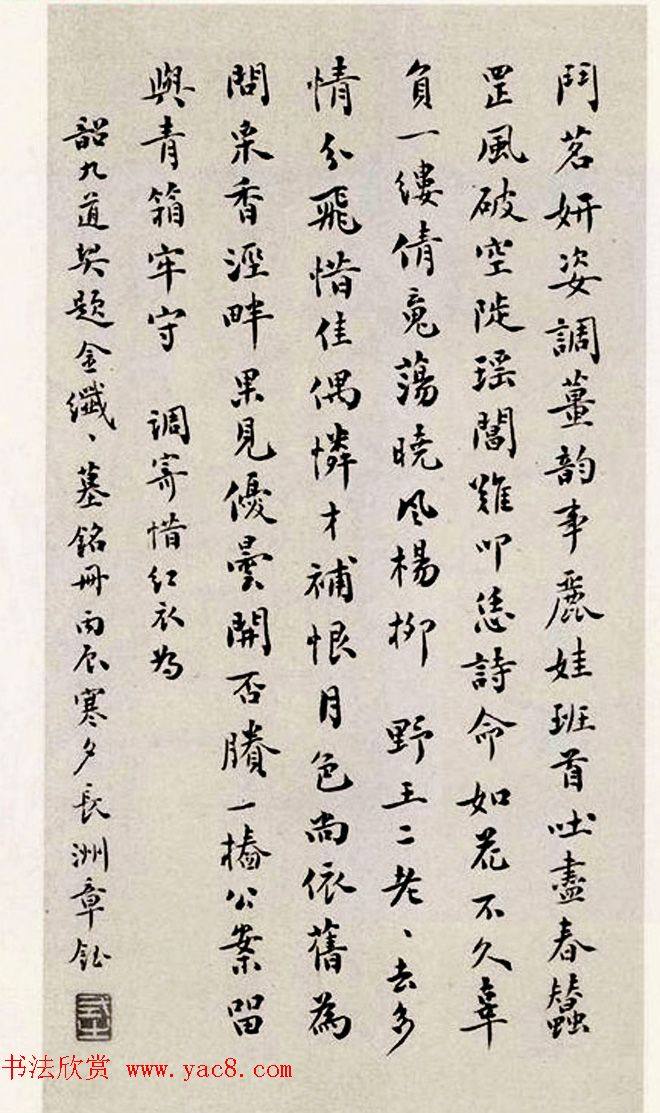 鬥茗妍姿調薑韵事麗娃班首吐盡春蠶
罡風破空陡瑶閣難叩恁詩命如花不久辜
負一縷倩䰟蕩曉風楊柳 野王二老、去多
情分飛惜佳偶憐才補恨月色尚依舊為
問采香涇畔果見優曇開否賸一樁公案留
與青箱牢守 調寄惜紅衣為
韶九道契題金纖、墓銘冊丙辰寒夕長洲章鈺
书法欣赏 www.yac8.com